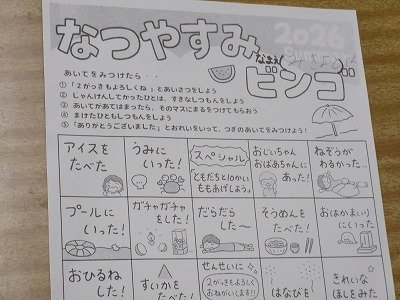 2026
なつやすみ
ビンゴ
なまえ
あいてをみつけたら・・
①「2がっきもよろしくね」とあいさつをしよう
②じゃんけんしてかったひとは、すきなしつもんをしよう
③あいてがあてはまったら、そのマスにまるをつけてもらおう
④まけたひともしつもんをしよう
⑤「ありがとうございました」とおれいをいって、つぎのあいてをみつけよう!
アイスを
たべた
うみに
いった!
スペシャル
「ともだちと10かい
ももあげしよう」
おじいちゃん
おばあちゃんに
あった!
ねぞうが
わるかった…
プールに
いった!
ガチャガチャ
をした!
だらだら
した~
そうめんを
たべた!
おはかまいり
にいった
おひるね
した!
すいかを
たべた
せんせいに
「2がっきもよろしく
おねがいします!」
はなびを
きれいな
ほしをみた